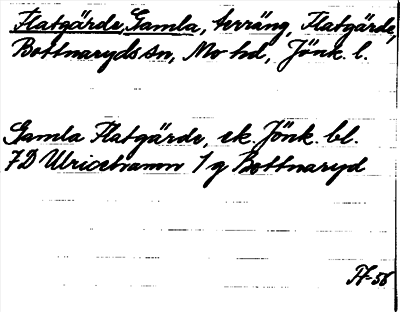 Flatgärde, Gamla, terräng, Flatgärde,
Bottnaryds sn, Mo hd, Jönk. l.
Gamla Flatgärde, ek. Jönk. bl.
7D Ulricehamn 1 g Bottnaryd